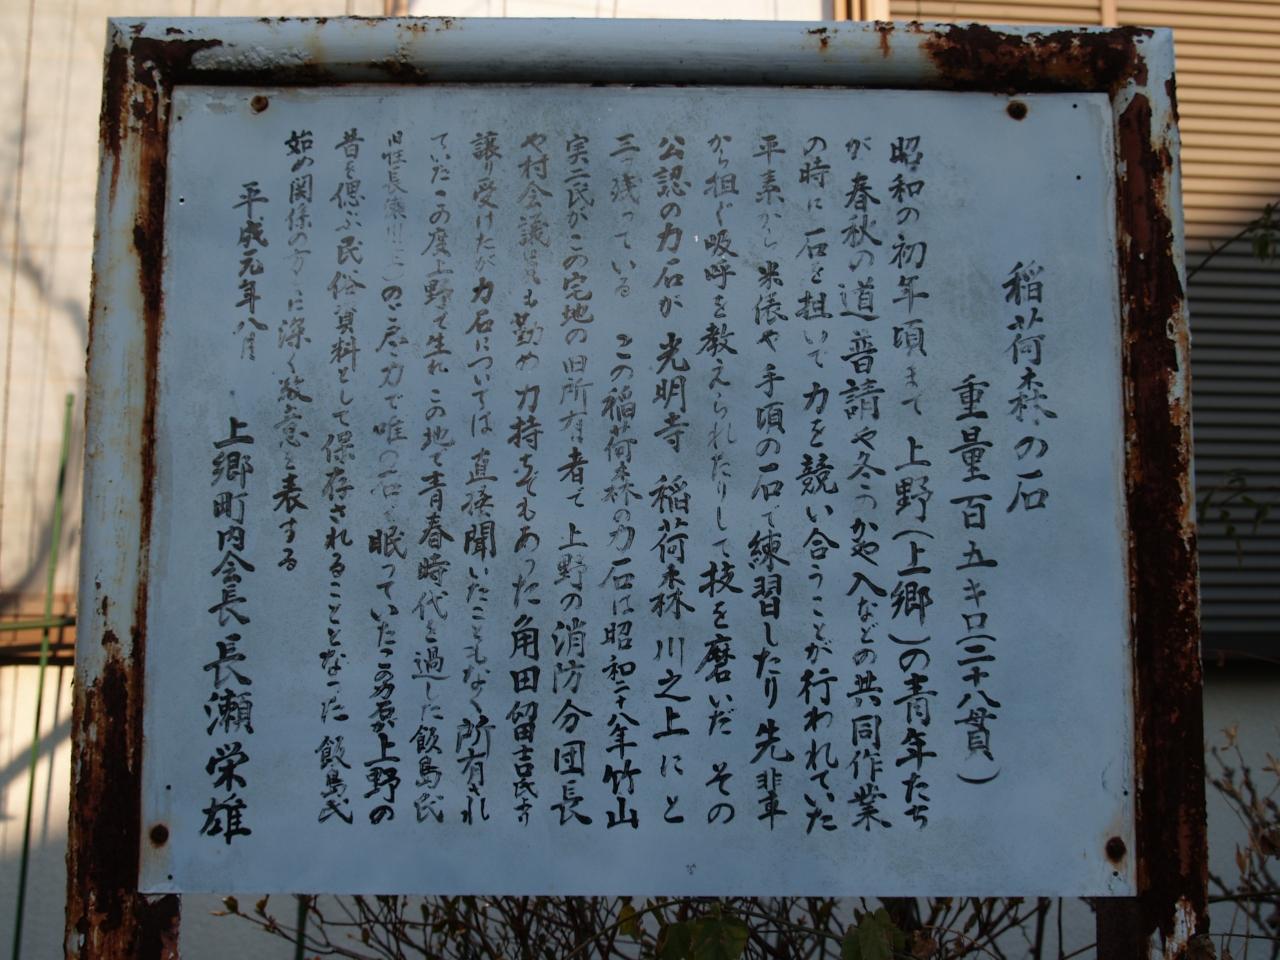 稲荷森の石
重量百五キロ(二十八貫)
昭和の初年頃まで 上野(上郷)の青年たち
が 春秋の道普請や冬のかや入などの共同作業
の時に 石を担いで 力を競い合うことが行われていた
平素から米俵や手頃の石で練習したり 先輩
から担ぐ吸呼を教えられたりして技を磨いだ その
公認の力石が 光明寺 稲荷森 川之上 にと
三つ残っている この稲荷森の力石は昭和二十八年竹山
実二氏がこの宅地の旧所有者で 上野の消防分団長
や村会議員も勤め 力持ちでもあった 角田留吉氏より
譲り受けたが 力石については 直接聞いたこともなく 所有され
ていた この度上野で生れ この地で青春時代を過した 飯島氏
のご尽力で唯の石で眠っていたこの力石が上野の
昔を偲ぶ民俗資料として保存されることとなった 飯島氏
始め関係の方々に深く敬意を表する
平成元年八月
上郷町内会長 長瀬栄雄